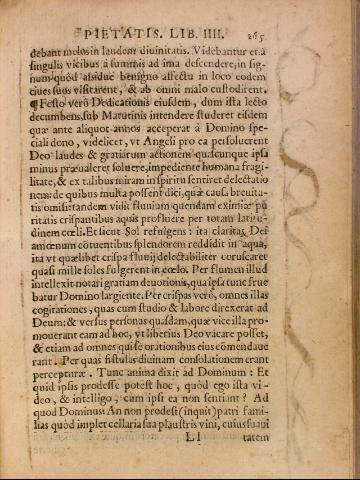 PIETATIS. LIB. IIII. 265
debant melos in laudem diuinitatis. Videbantur et à
singulis vicibus à summis ad ima descendere, in sig-
num quòd assiduè benigno affectu in loco eodem
ciues suos visitarent, & ab omni malo custodirent.
¶ Festo verò Dedicationis eiusdem, dum ista lecto
decumbens, sub Matutinis intendere studeret eisdem
quæ ante aliquot annos acceperat à Domino spe-
ciali dono, videlicet, vt Angeli pro ea persoluerent
Deo laudes & gratiarum actionem quascunque ipsa
minus præualeret soluere, impediente humana fragi-
litate, & ex talibus miram in spiritu sentiret delectatio
nem: de quibus multa possent dici, quæ causa breuita-
tis omisi: tandem vidit fluuium quendam eximiæ pu
ritatis crispantibus aquis profluere per totam latitu-
dinem cœli. Et sicut Sol refulgens: ita claritas Dei
amœnum cōtuentibus splendorem reddidit in aqua,
ita vt quælibet crispa fluuij delectabiliter coruscaret
quasi mille soles fulgerent in cœlo. Per flumen illud
intellexit notari gratiam deuotionis, qua ipsa tunc frue
batur Domino largiente. Per crispas verò, omnes illas
cogitationes, quas cum studio & labore direxerat ad
Deum: & versus personas quasdam, quæ vice illa pro-
mouerant eam ad hoc, vt liberius Deo vacare posset,
& etiam ad omnes qui se orationibus eius cōmendaue
rant. Per quas fistulas diuinam consolationem erant
percepturæ. Tunc anima dixit ad Dominum: Et
quid ipsis prodesse potest hoc, quòd ego ista vi-
deo, & intelligo, cum ipsi ea non sentiant? Ad
quod Dominus: An non prodest (inquit) patri fami-
lias quòd implet cellaria sua plaustris vini, cuius suaui
Ll tatem